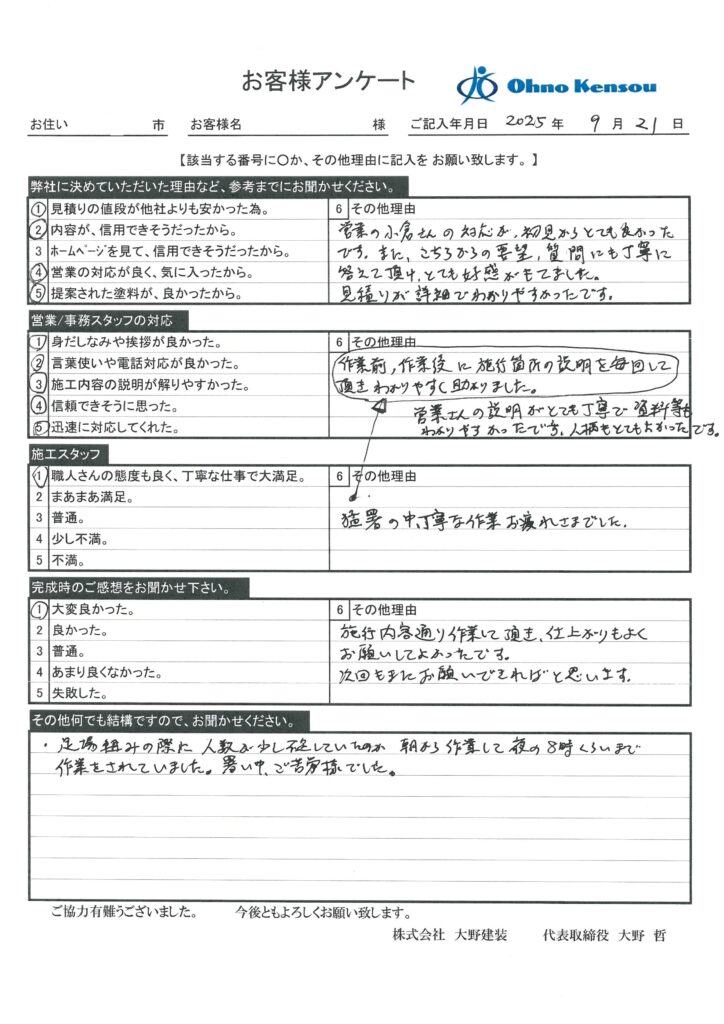 お客様アンケート
Ohno Kensou
お住い 市 お客様名 様 ご記入年月日 2025年 9月 21日
【該当する番号に〇か、その他理由に記入を お願い致します。】
弊社に決めていただいた理由など、参考までにお聞かせください。
① 見積りの値段が他社よりも安かった為。
② 内容が、信用できそうだったから。
3 ホームページを見て、信用できそうだったから。
④ 営業の対応が良く、気に入ったから。
⑤ 提案された塗料が、良かったから。
6 その他理由
営業の小倉さんの対応が、初見からとても良かった
です。また、こちらからの要望、質問にも丁寧に
答えて頂け、とても好感がもてました。
見積りが詳細でわかりやすかったです。
営業/事務スタッフの対応
① 身だしなみや挨拶が良かった。
② 言葉使いや電話対応が良かった。
③ 施工内容の説明が解りやすかった。
④ 信頼できそうに思った。
⑤ 迅速に対応してくれた。
6 その他理由
作業前,作業後に施行箇所の説明を毎回して
頂きわかりやすく助かりました。
営業さんの説明がとても丁寧で資料等も
わかりやすかったです。人柄もとてもよかったです。
施工スタッフ
① 職人さんの態度も良く、丁寧な仕事で大満足。
2 まあまあ満足。
3 普通。
4 少し不満。
5 不満。
6 その他理由
猛署の中、丁寧な作業お疲れさまでした.
完成時のご感想をお聞かせ下さい。
① 大変良かった。
2 良かった。
3 普通。
4 あまり良くなかった。
5 失敗した。
6 その他理由
施行内容通り作業して頂き、仕上がりもよく
お願いしてよかったです。
次回もまたお願いできればと思います。
その他何でも結構ですので、お聞かせください。
・足場組みの際に人数が少し不足していたのか 朝から作業して夜の8時くらいまで
作業をされていました。暑い中、ご苦労様でした。
ご協力有難うございました。 今後ともよろしくお願い致します。
株式会社 大野建装 代表取締役 大野 哲